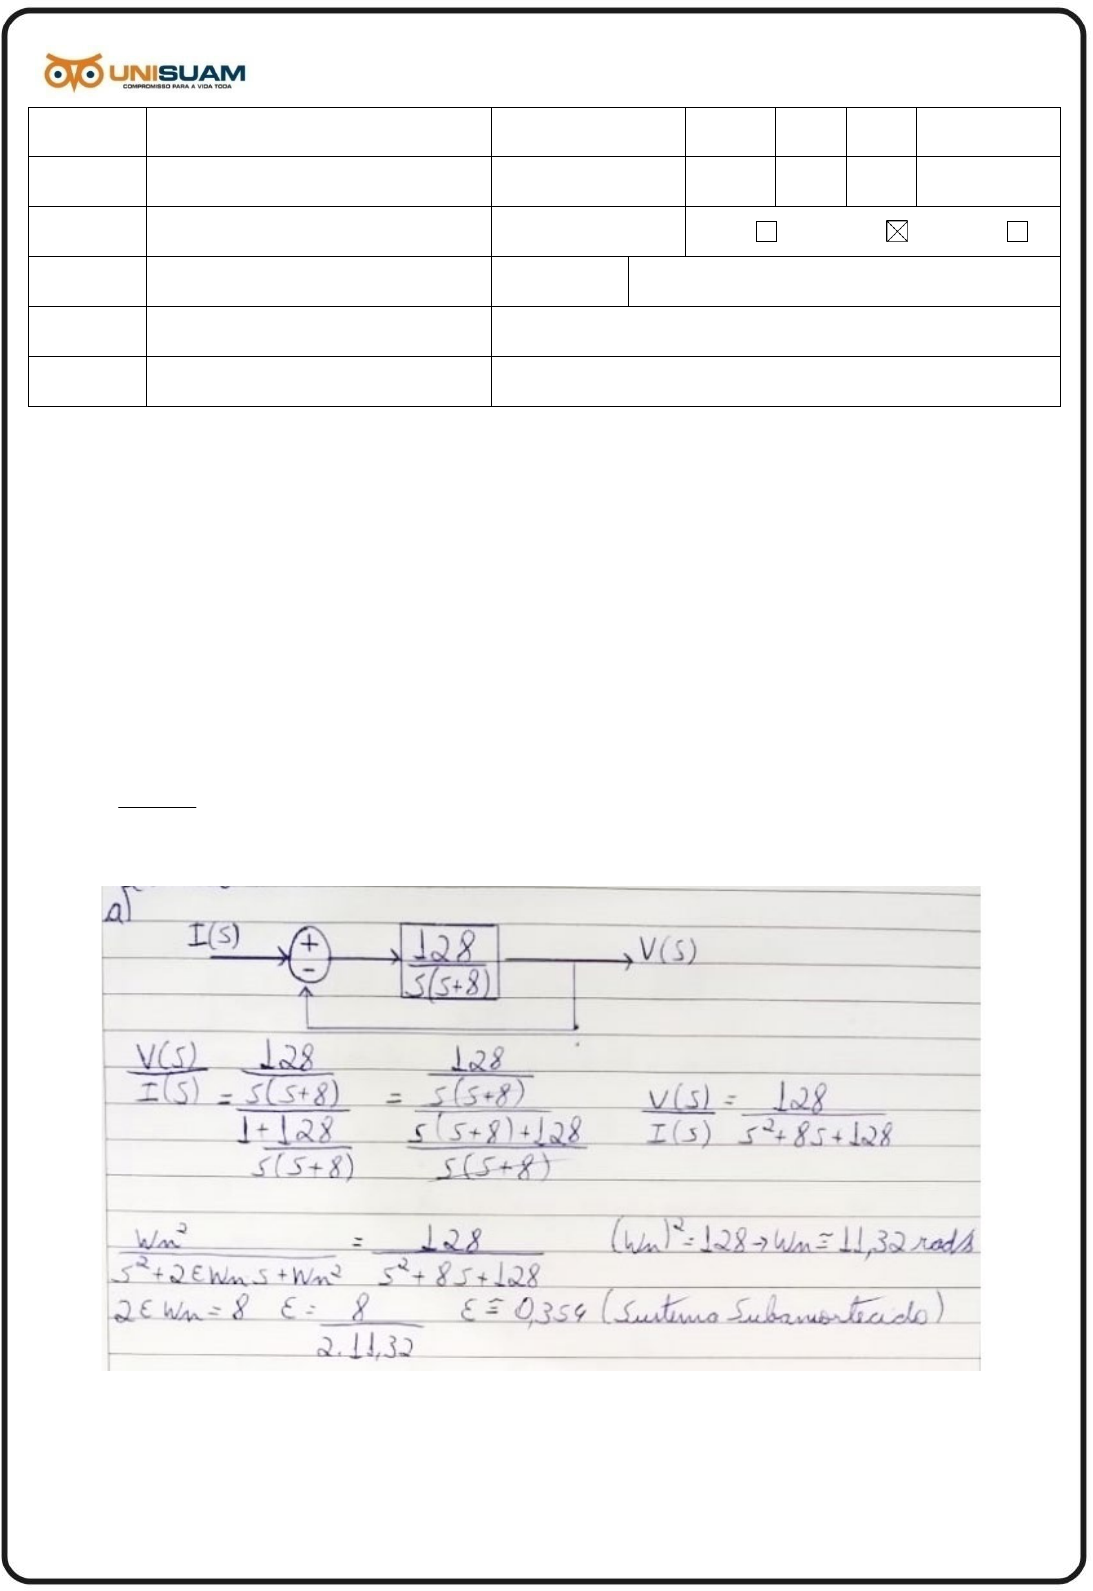 UNISUAM
COMPROMISSO PARA A VIDA TODA
a)
I(s) + - 128/s(s+8) V(s)
V(s)/I(s) = 128/s(s+8) / 1+128/s(s+8) = 128/s(s+8) / s(s+8)+128/s(s+8) V(s)/I(s) = 128/s²+8s+128
Wn²/s²+2εWns+Wn² = 128/s²+8s+128 (Wn)²=128→Wn≅11,32 rad/s
2εWn=8 ε= 8/2.11,32 ε≅0,354 (Sistema Subamortecido)